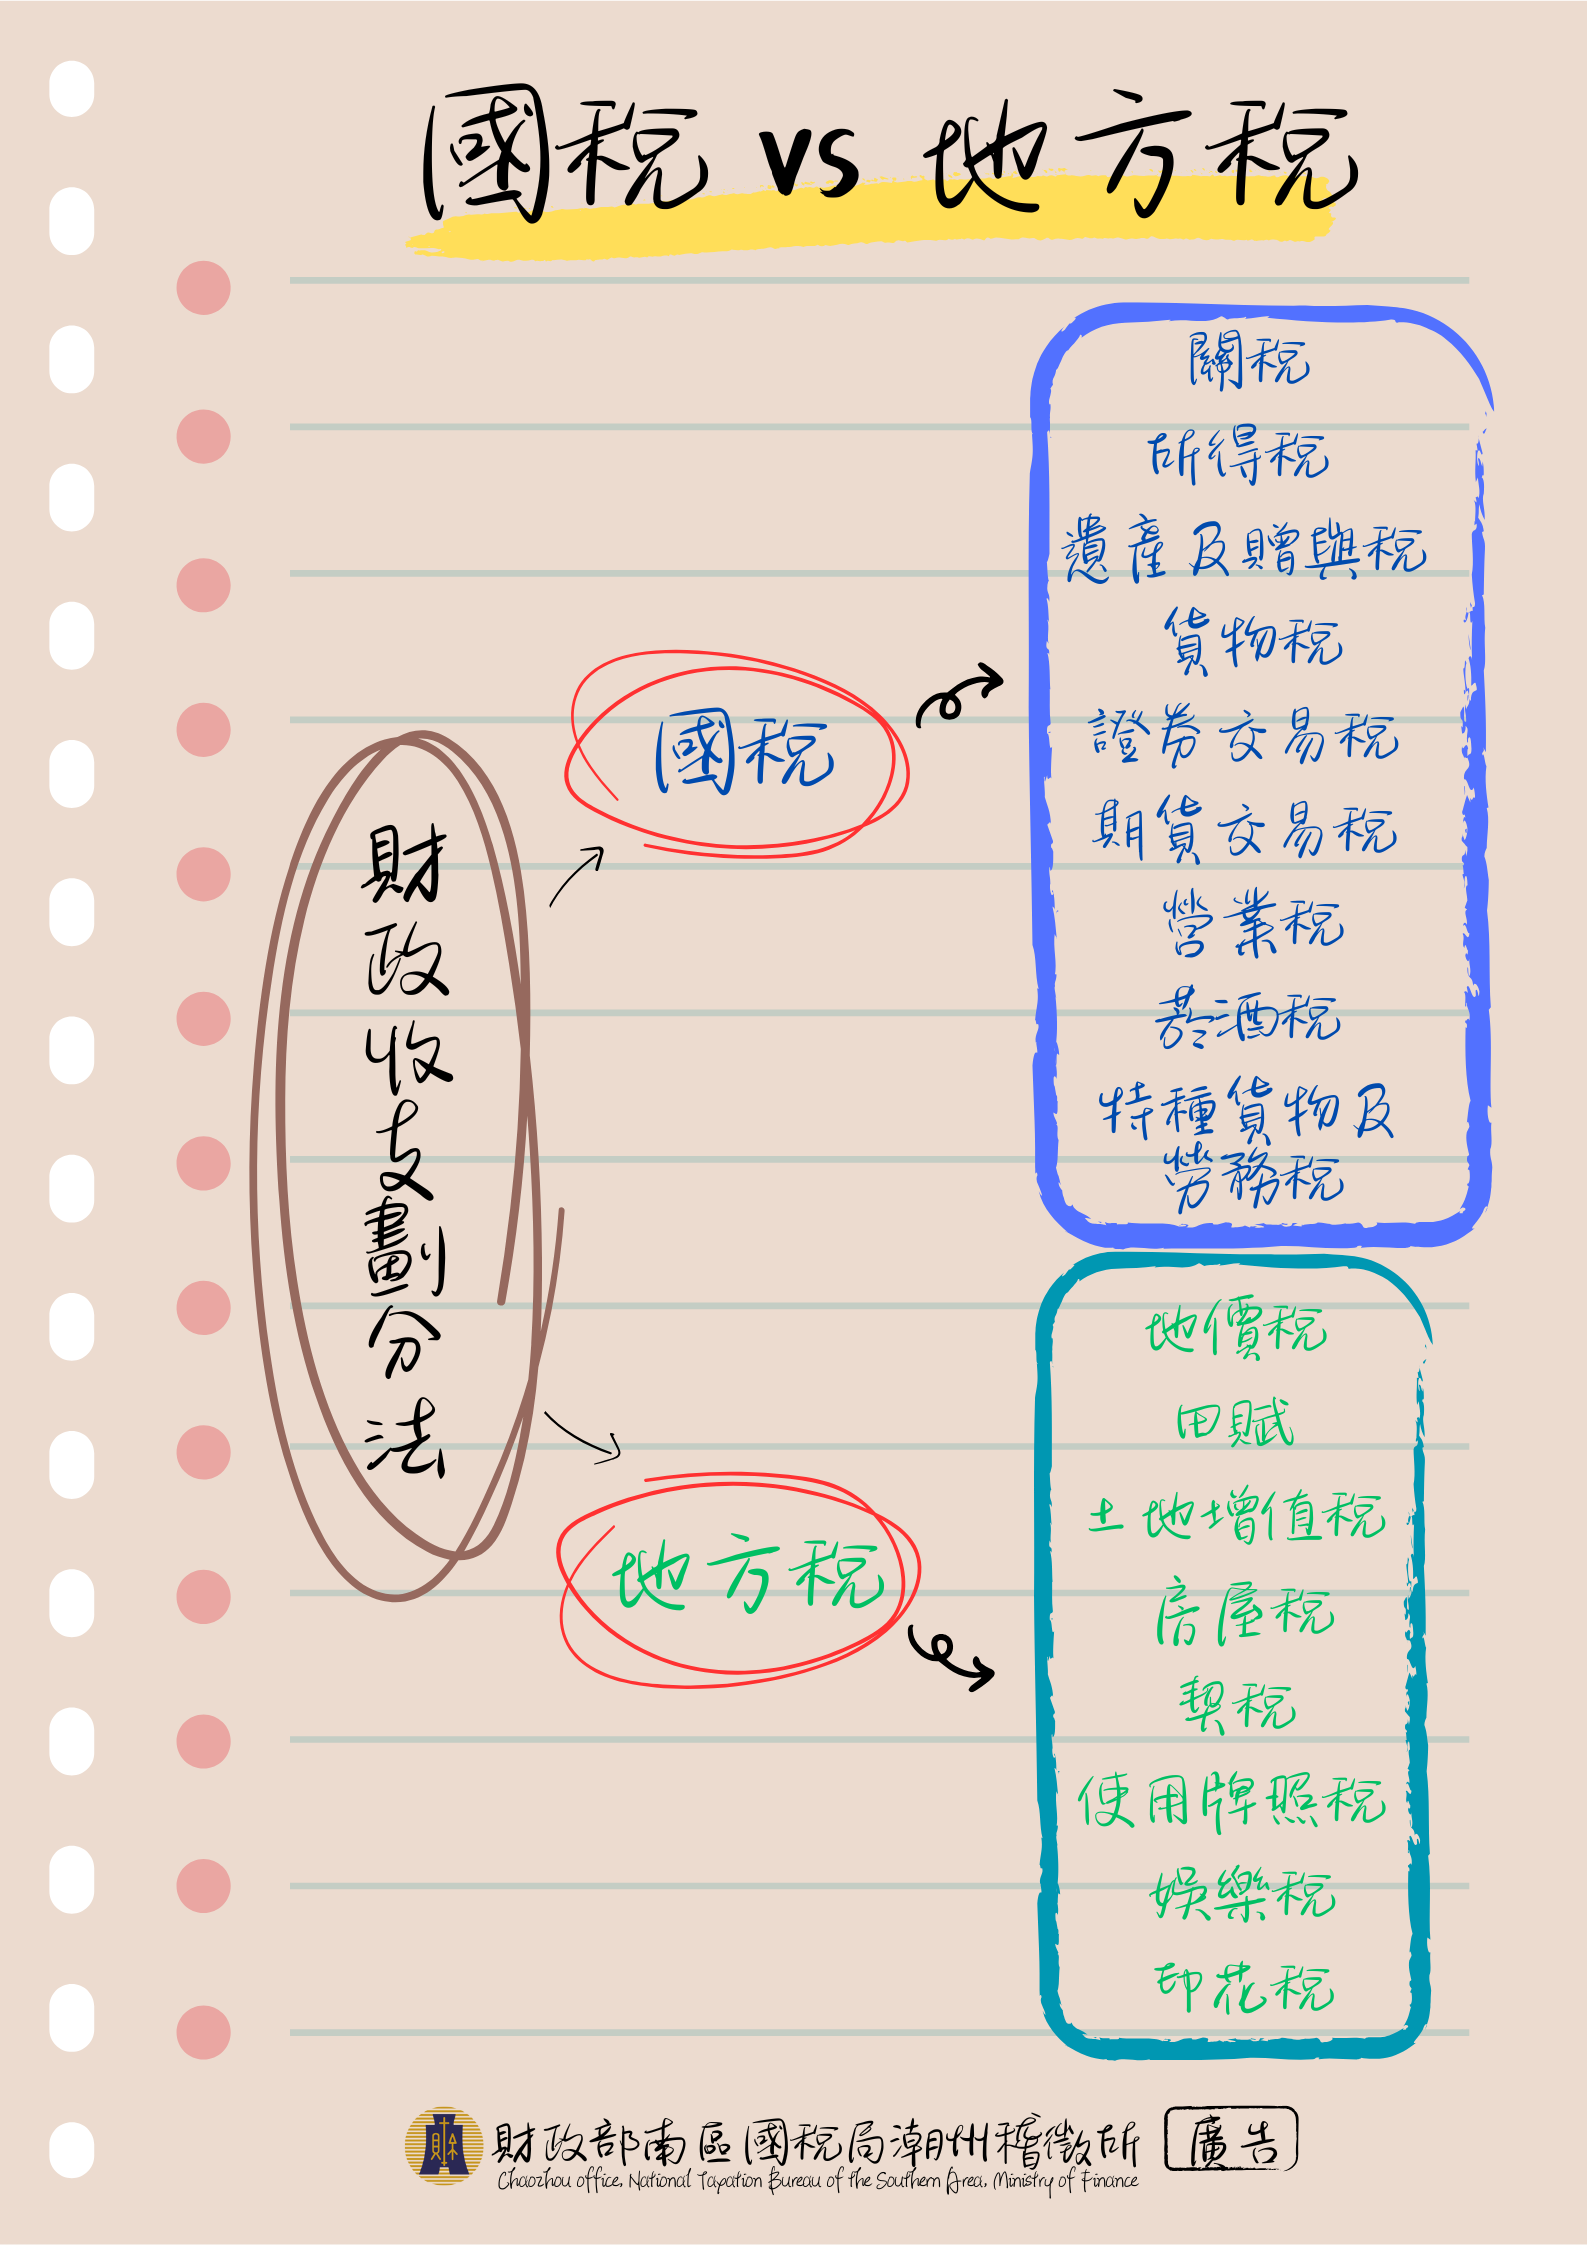 國稅 vs 地方稅
財政收支劃分法
國稅
關稅
所得稅
遺產及贈與稅
貨物稅
證券交易稅
期貨交易稅
營業稅
菸酒稅
特種貨物及
勞務稅
地方稅
地價稅
田賦
土地增值稅
房屋稅
契稅
使用牌照稅
娛樂稅
印花稅
財政部南區國稅局潮州稽徵所
廣告
Chaozhou office, National Taxation Bureau of the Southern Area, Ministry of Finance